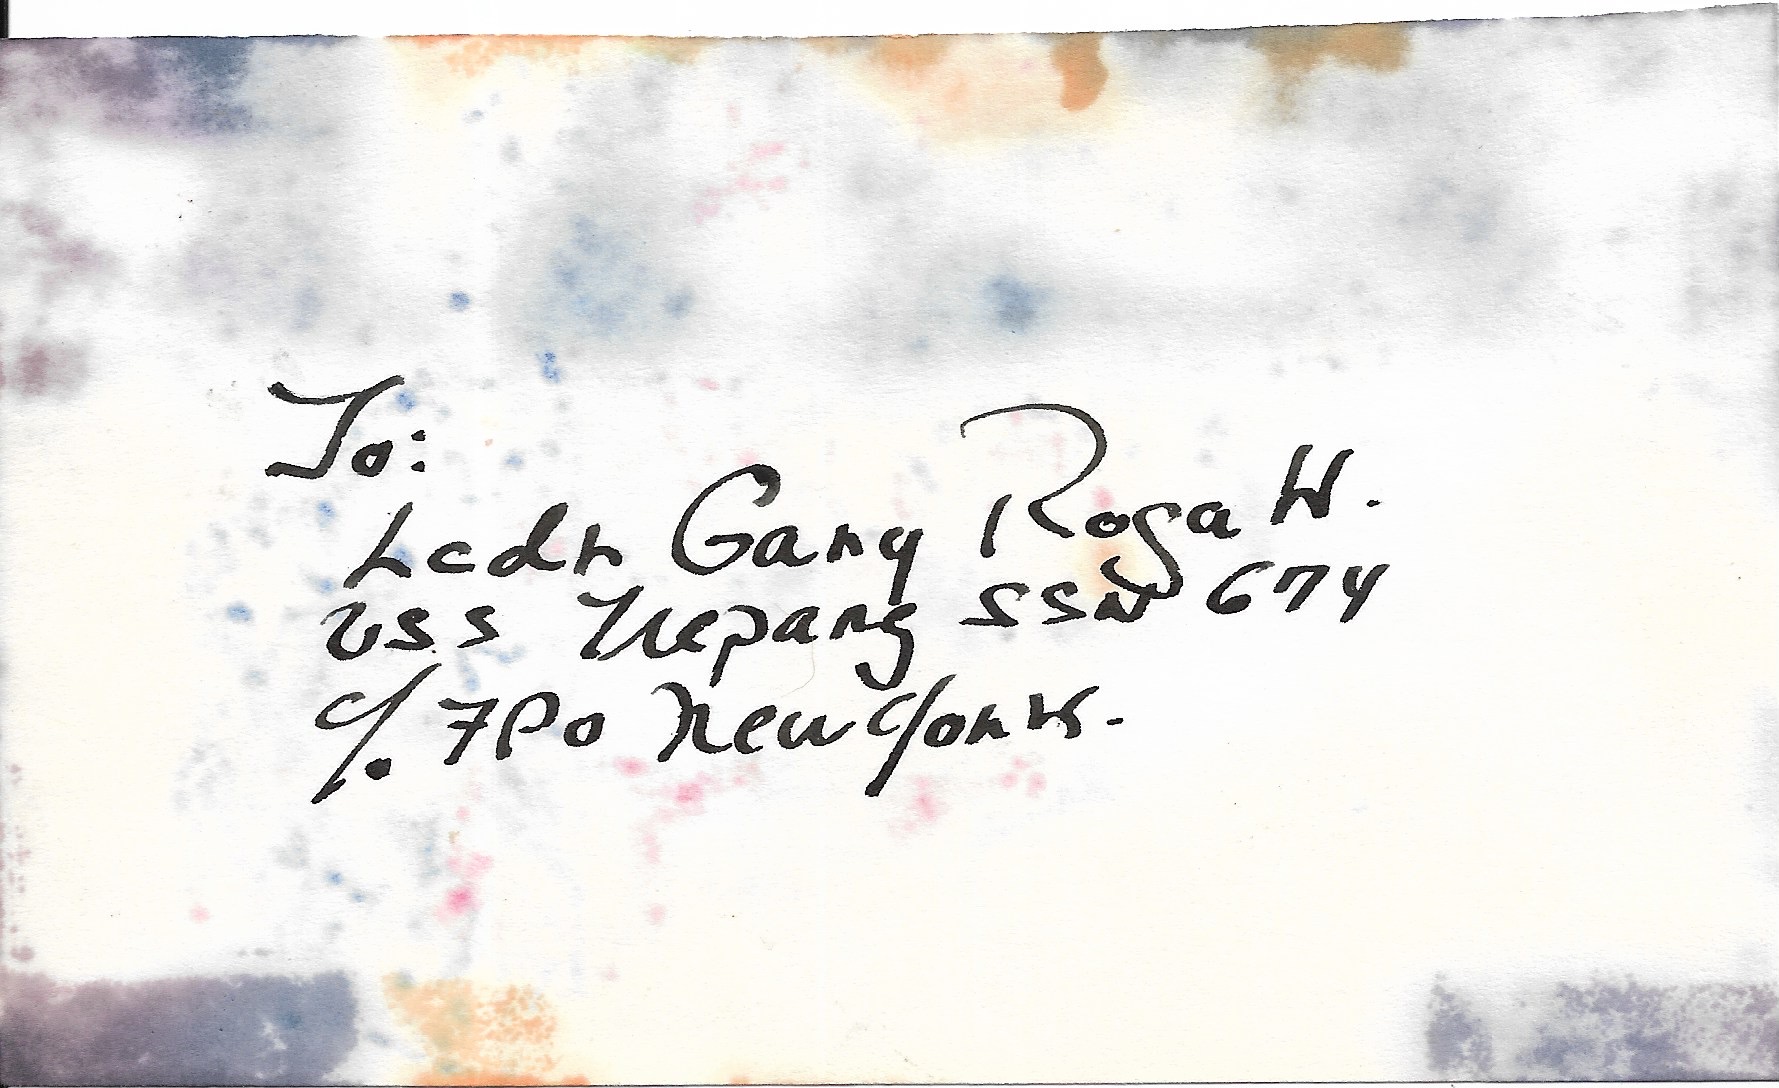 To:
Lcdr Gary Roga W.
USS Trepang SSN 674
c/. FPO New York.